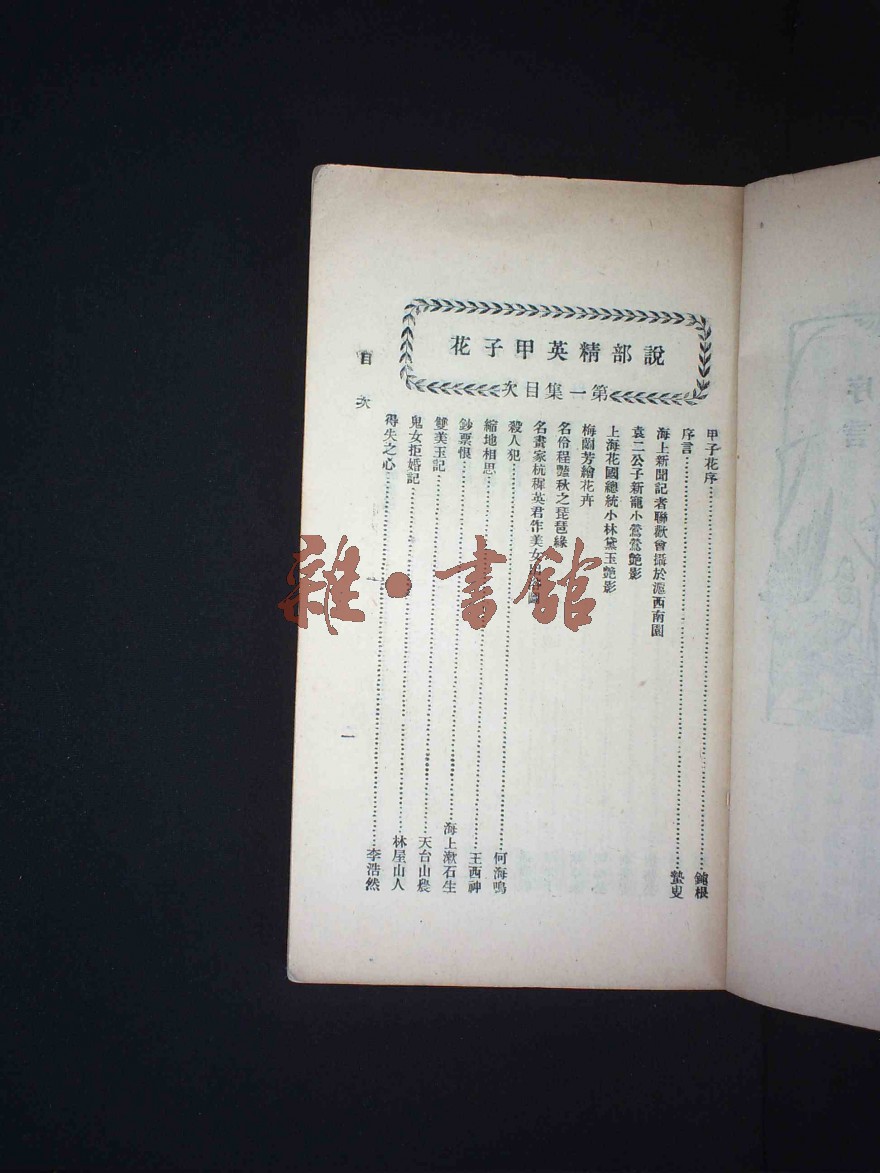 說部精英甲子花
第一集目次
甲子花序……鈍根
序言……蟄叟
海上新聞記者聯歡會攝於滬西南園
袁二公子新寵小鶯鶯艶影
上海花國總統小林黛玉艶影
梅蘭芳繪花卉
名伶程艶秋之琵琶緣
名畫家杭穉英君作美女出浴圖
殺人犯……何海鳴
縮地相思……王西神
鈔票恨……海上漱石生
雙美玉記……天台山農
鬼女拒婚記……林屋山人
得失之心……李浩然
目次
一
雜·書館
序言